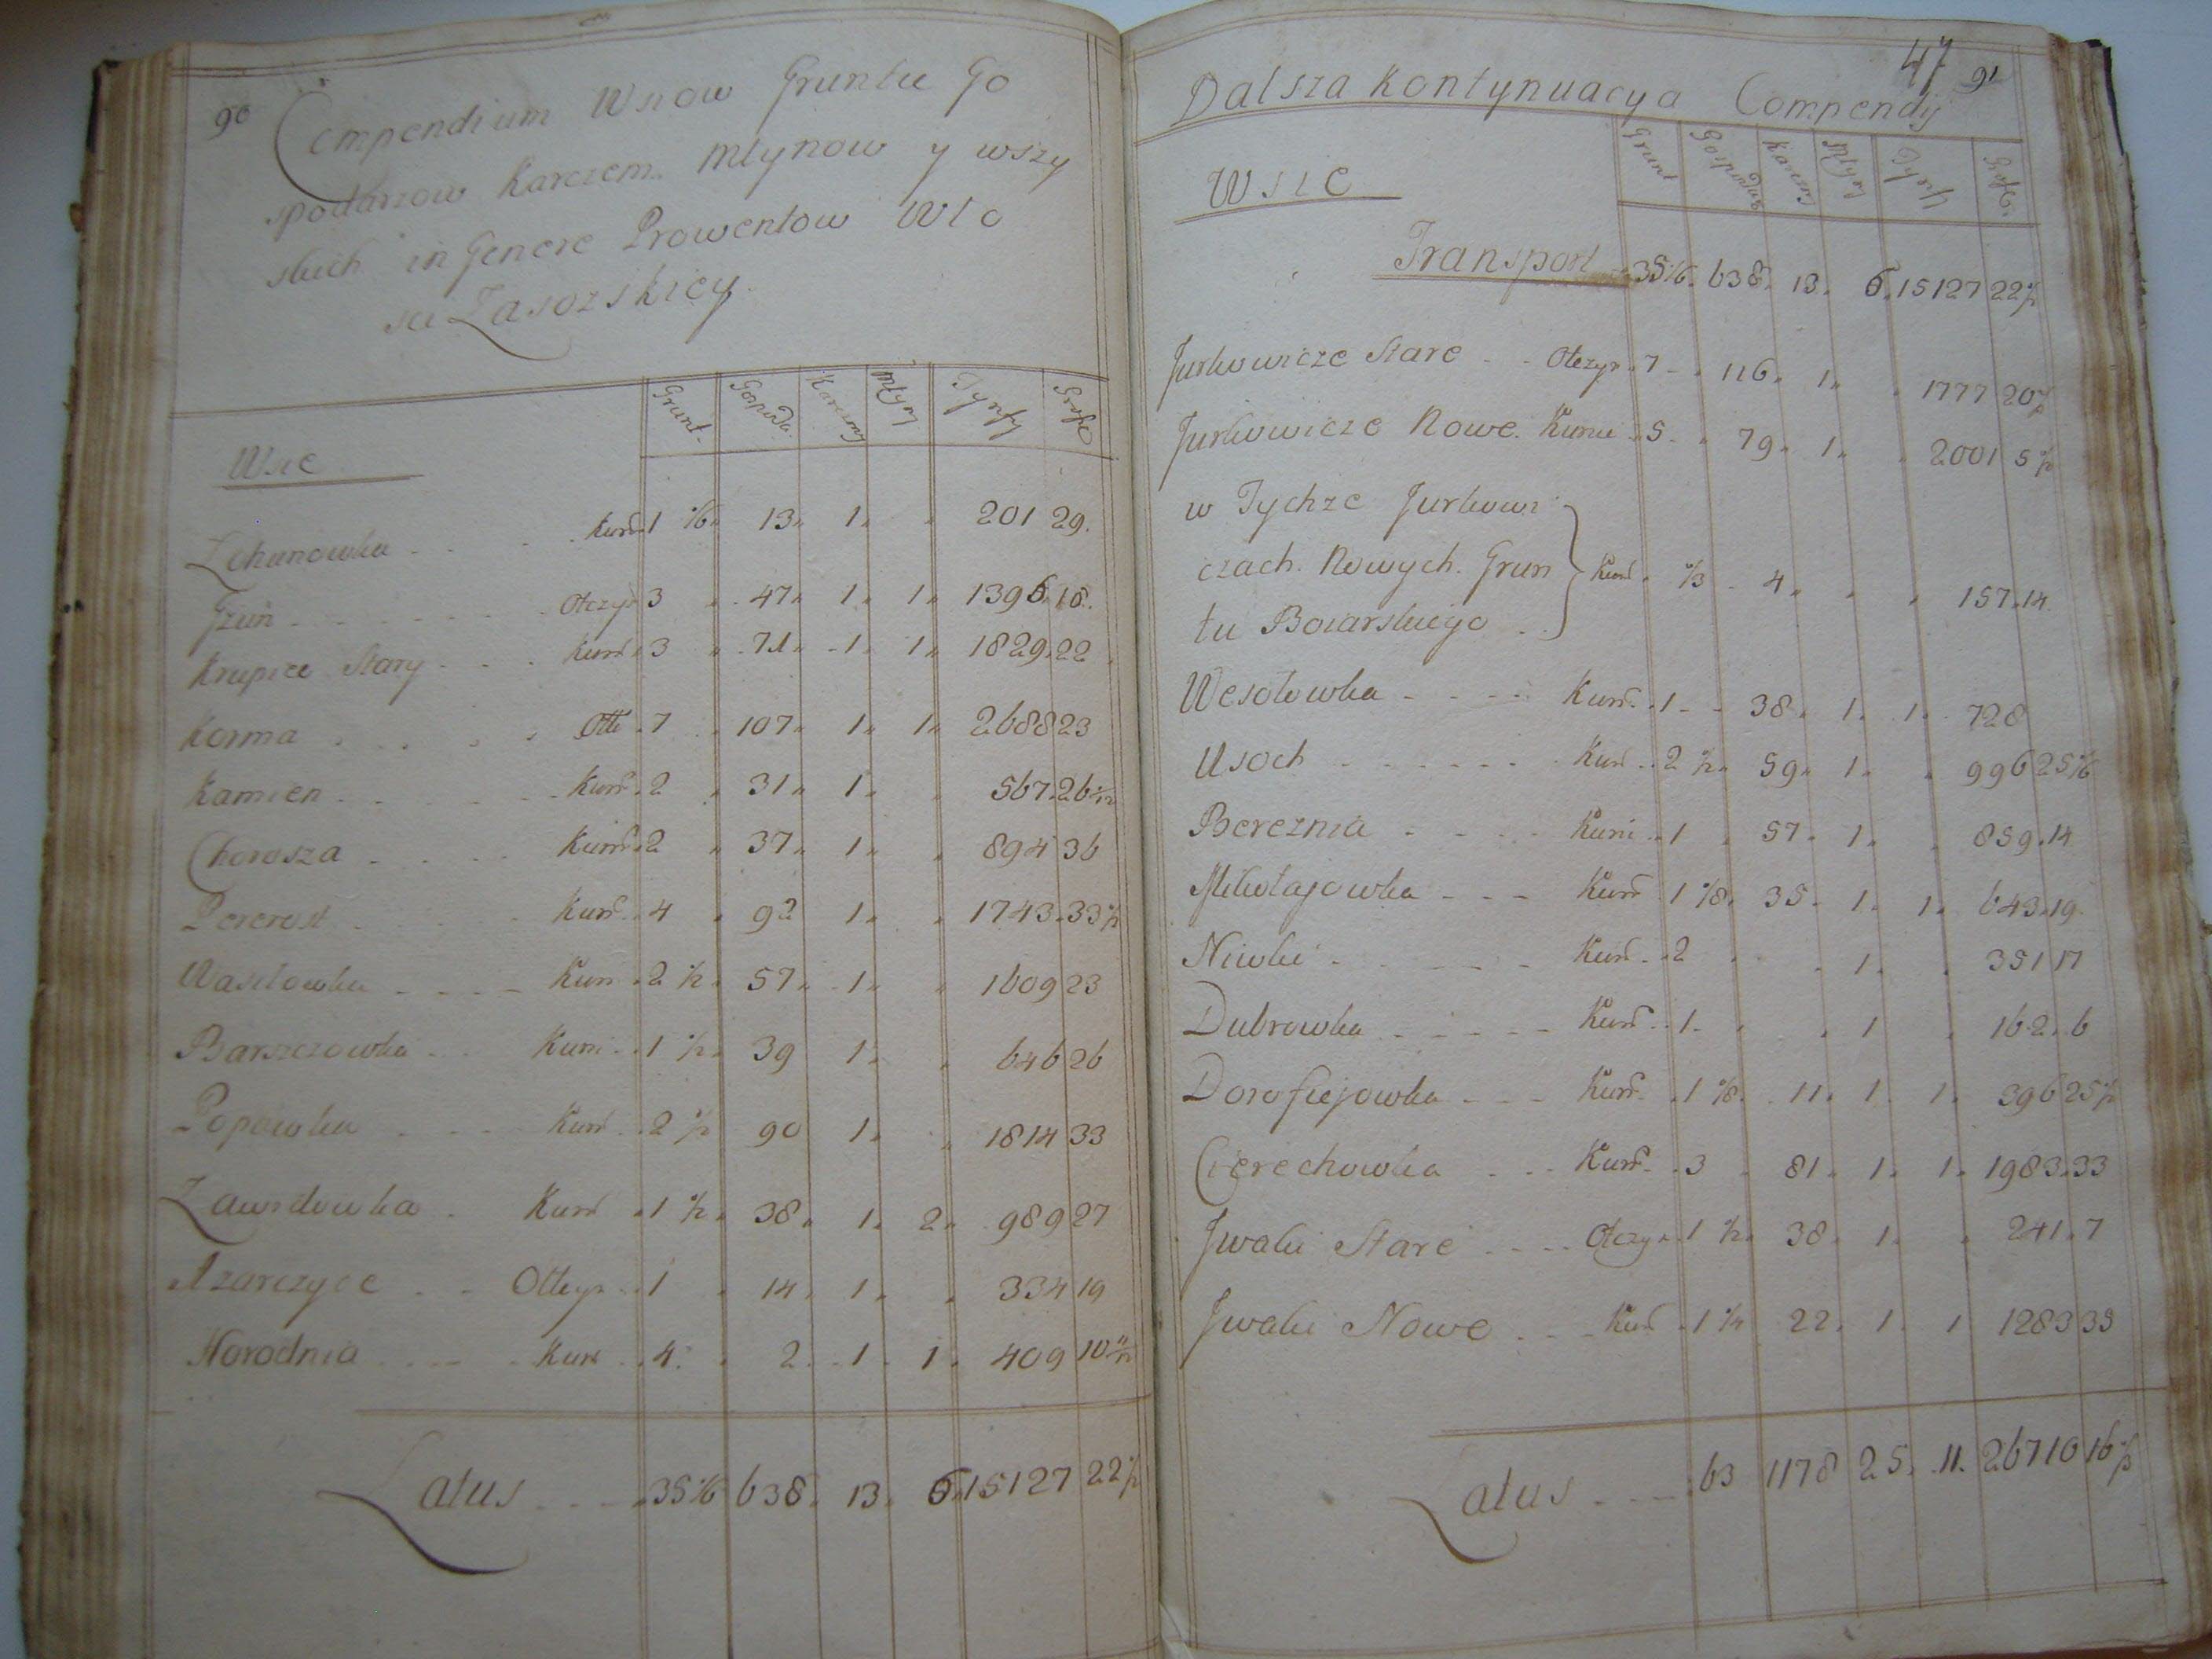 90
Compendium Wsiow Gruntu Go
spodarzow Karczem Młynow y wszy
stkich in Genere Prowentow Wło
sci Zasozskiey
Grunt Gospoda. Karczmy Młyny Tynfy Grosze
Wsie
Kuni 1 1/6 13 1 201 29
Otczyz 3 47 1 1 1396 18
Krupice Stary Kuni 3 71 1 1 1829 22
Korma Otte 7 107 1 1 2688 23
Kamien Kuni 2 31 1 567 26
Chorosza Kuni 2 37 1 894 36
Pererost Kuni 4 92 1 1743 33 1/2
Wasilowka Kuni 2 1/2 57 1 1609 23
Barszczowka Kuni 1 1/2 39 1 646 26
Popowka Kuni 2 1/2 90 1 1814 33
Zawidowka Kuni 1 1/2 38 1 2 989 27
Azarczyce Otteyz 1 14 1 334 19
Horodnia Kuni 4 2 1 1 409 10
Latus 35 1/6 638 13 6 15127 22 1/2
47 91
Dalsza Kontynuacya Compendij
Grunt Gospodar Karczmy Młyny Tynfy Grosze
Wsie
Transport 35 1/6 638 13 6 15127 22 1/2
Jurkowicze Stare Otczyz 7 116 1 1777 20
Jurkowicze Nowe Kunie 5 79 1 2001 5 1/2
w Tychże Jurkowi
czach Nowych Grun Kuni 1/3 4 157 14
tu Boiarskiego
Wesołowka Kuni 1 38 1 1 728
Usoch Kuni 2 1/2 59 1 996 25 1/6
Bereznia Kuni 1 57 1 859 14
Mikołajowka Kuni 1 1/8 35 1 1 643 19
Niwki Kuni 2 1 351 17
Dubrowka Kuni 1 1 162 6
Dorofiejowka Kuni 1 1/8 11 1 1 396 25 1/2
Cierechowka Kuni 3 81 1 1 1983 33
Jwaki Stare Otczyz 1 1/2 38 1 241 7
Jwaki Nowe Kuni 1 1/4 22 1 1 1283 35
Latus 63 1178 25 11 26710 16 1/3